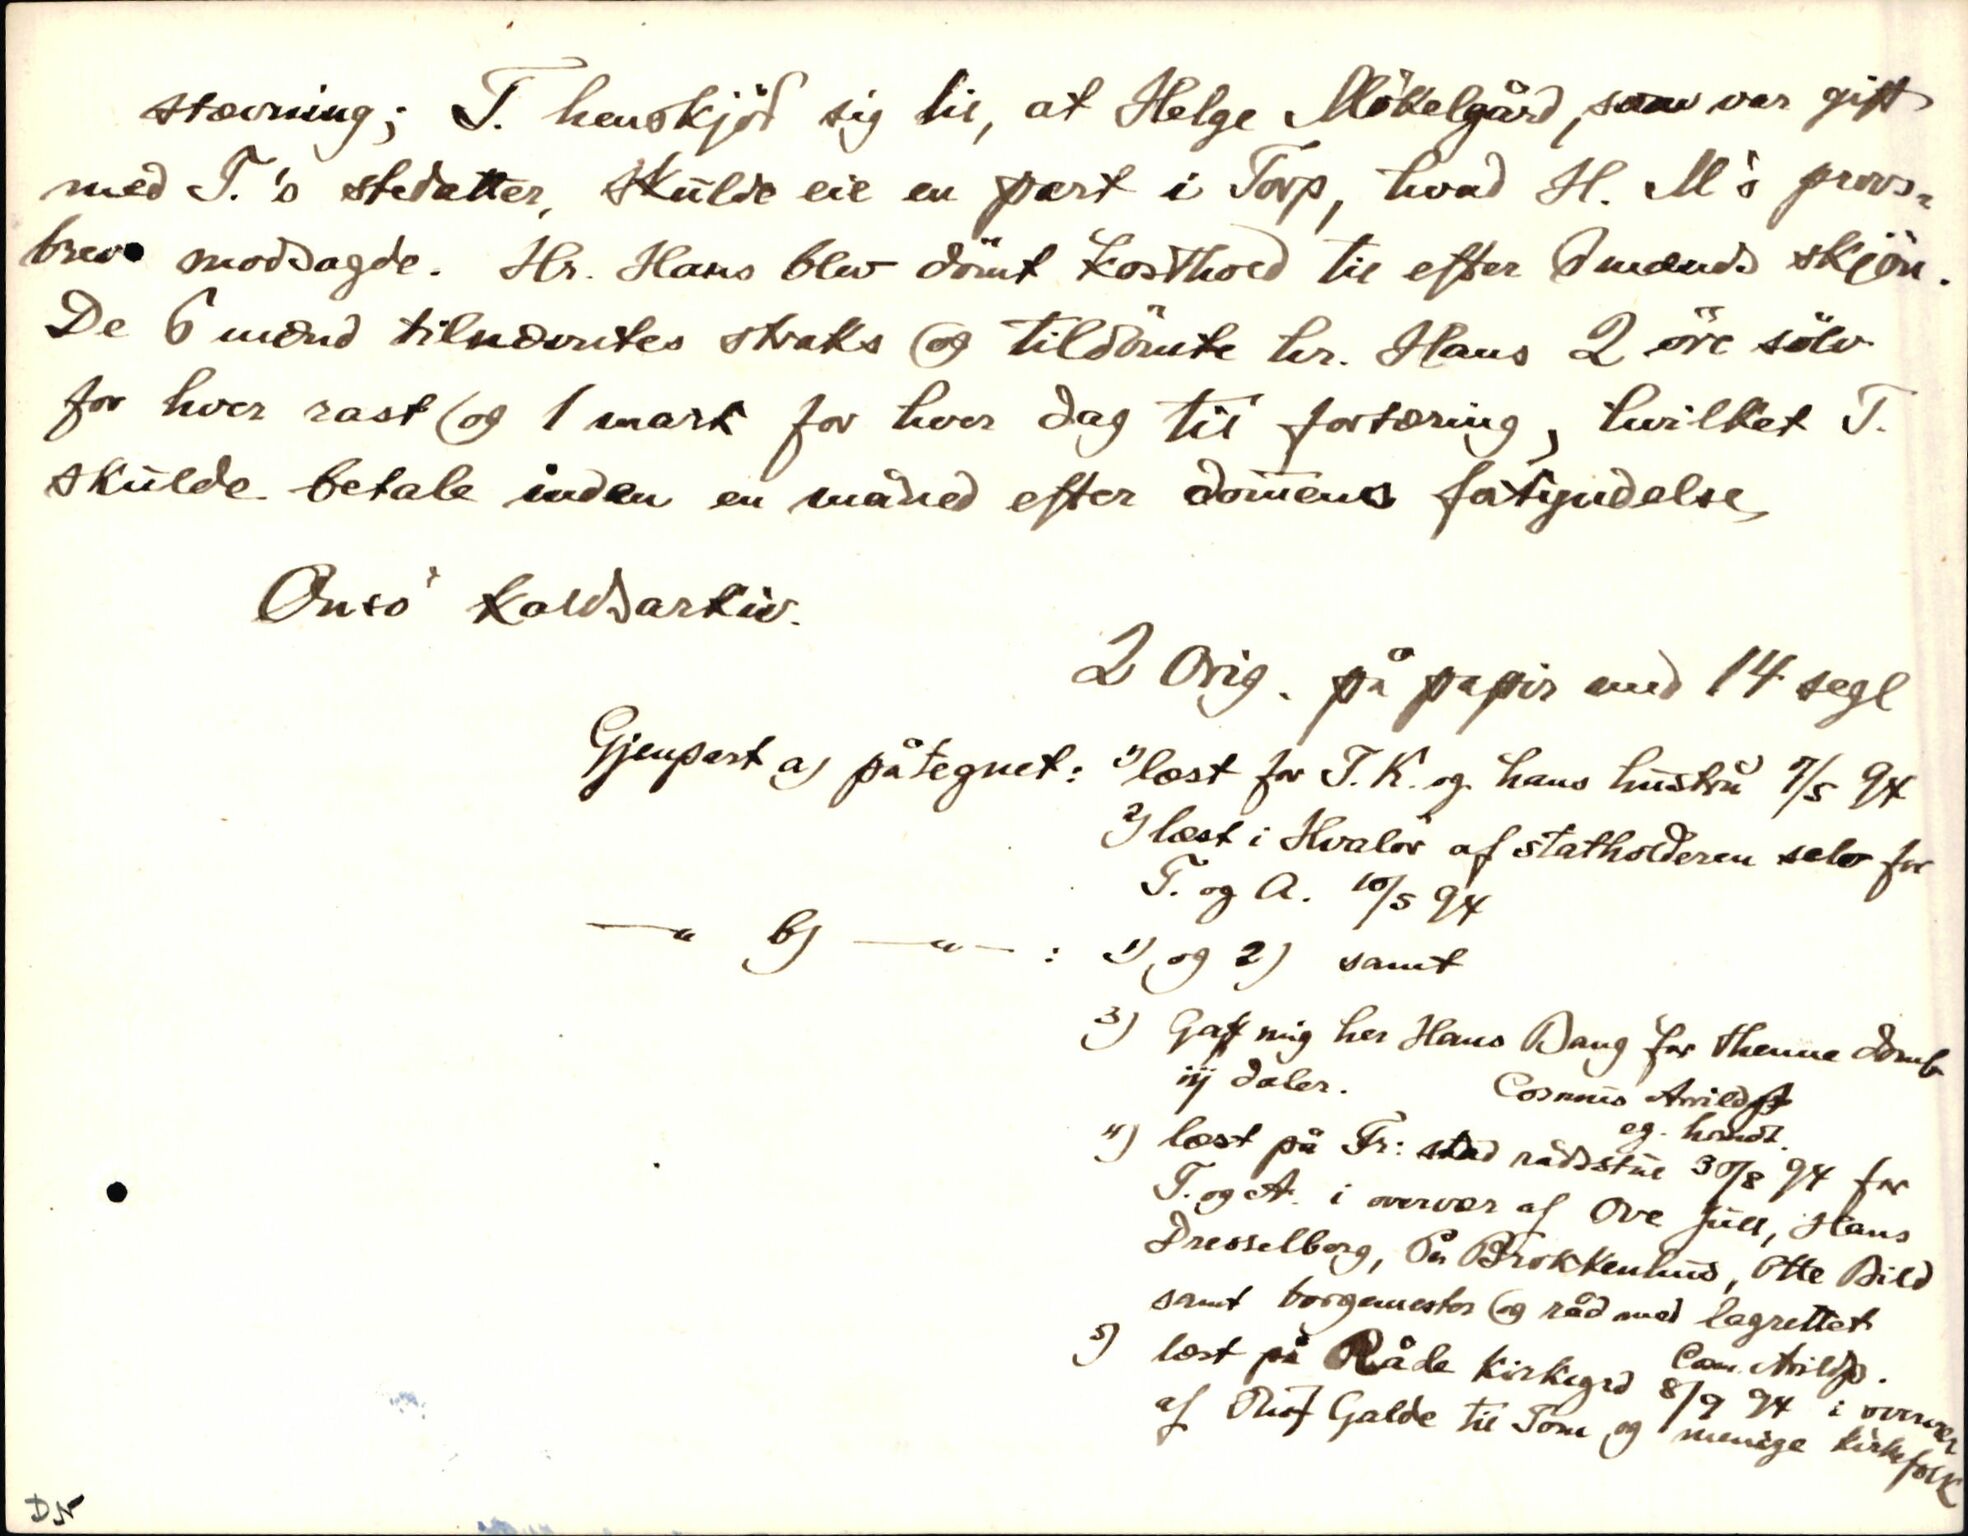 stævning; T. henskjöd sig til, at Helge Mökelgård, som var gift
med T.'s stedatter, skulde eie en part i Torp, hvad H. M's provs-
brev modsagde. Hr. Hans blev dömt kosthold til efter 6 mænds skjön.
De 6 mænd tilnævntes straks og tildömte hr. Hans 2 öre sölv
for hver rast og 1 mark for hver dag til fortæring, hvilket T.
skulde betale inden en måned efter dommens forkyndelse
Onsö kaldsarkiv.
2 Orig. på papir med 14 segl
Gjenpart a) påtegnet: 1) læst for T. K. og hans hustru 7/5 94
2) læst i Hvalör af statholderen selv for
T. og A. 10/5 94
—"— b) —"— : 1) og 2) samt
3) Gaff mig her Hans Bang for thenne domb
iij daler. Cosmus Arildss
eg. hendt.
4) læst på Fr: stad rådstue 30/8 94 for
T. og A. i overvær af Ove Juel, Hans
Dresselberg, Brokkenhus, Otte Bild
samt borgemester og råd med lagrettet
Cosm. Arilds.
5) læst på Råde kirkegrd 8/9 94 i overvær
af Oluf Galde til Tom og menige kirkefolk
DN